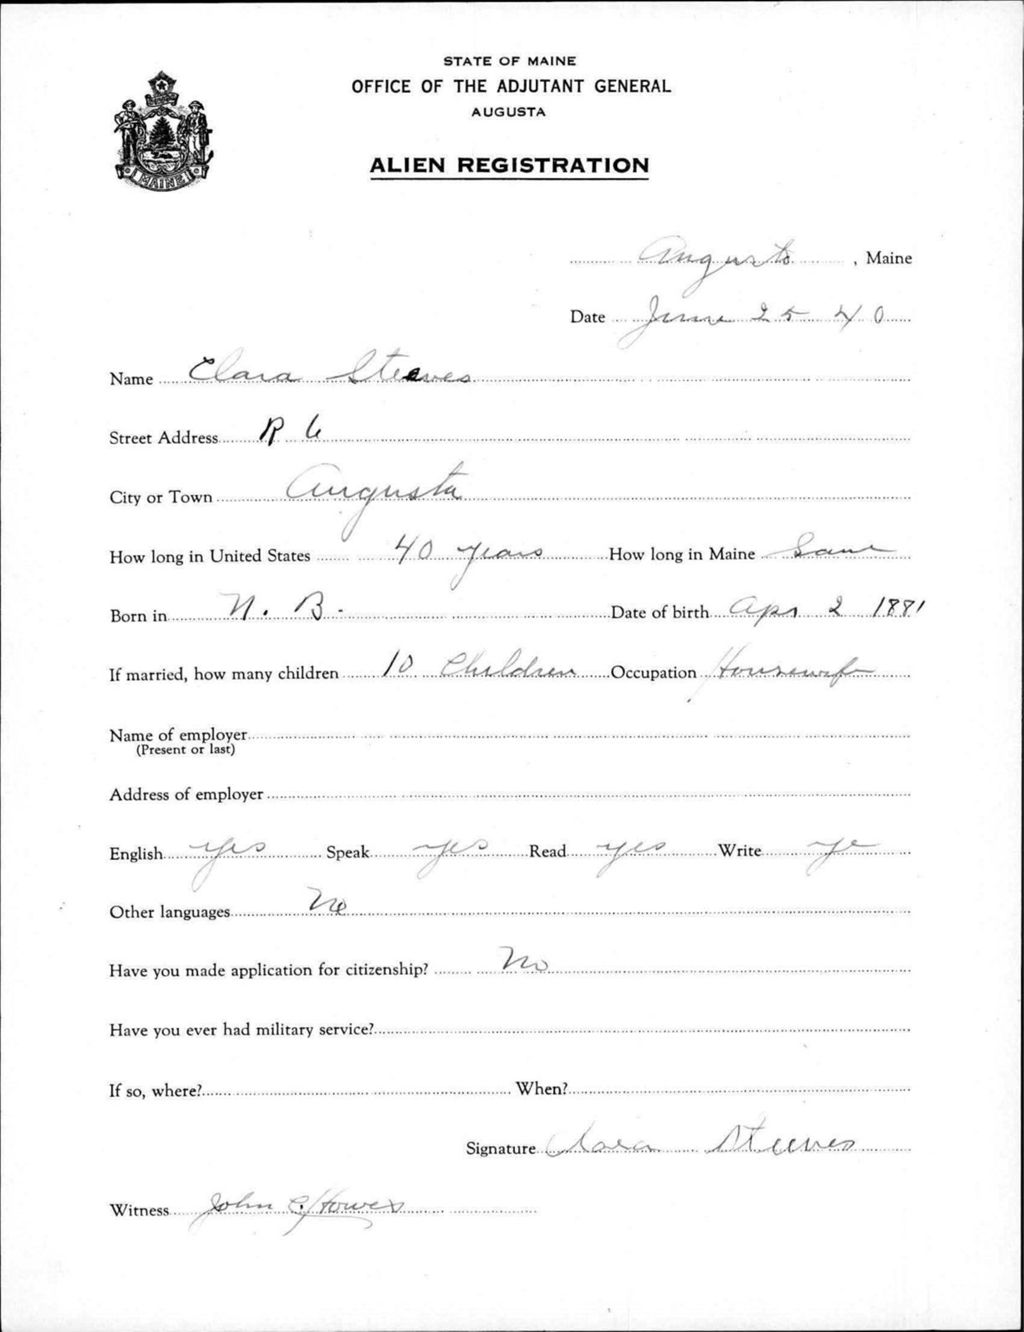 STATE OF MAINE
OFFICE OF THE ADJUTANT GENERAL
AUGUSTA
MAINE
ALIEN REGISTRATION
Augusta, Maine
Date June 25 40
Name Clara Steeves
Street Address R 6
City or Town Augusta
How long in United States 40 years How long in Maine Same
Born in N. B. Date of birth Apr 2 1881
If married, how many children 10 Children Occupation Housewife
Name of employer
(Present or last)
Address of employer
English yes Speak yes Read yes Write ye
Other languages No
Have you made application for citizenship? No
Have you ever had military service?
If so, where? When?
Signature Clara Steeves
Witness John C. Howes